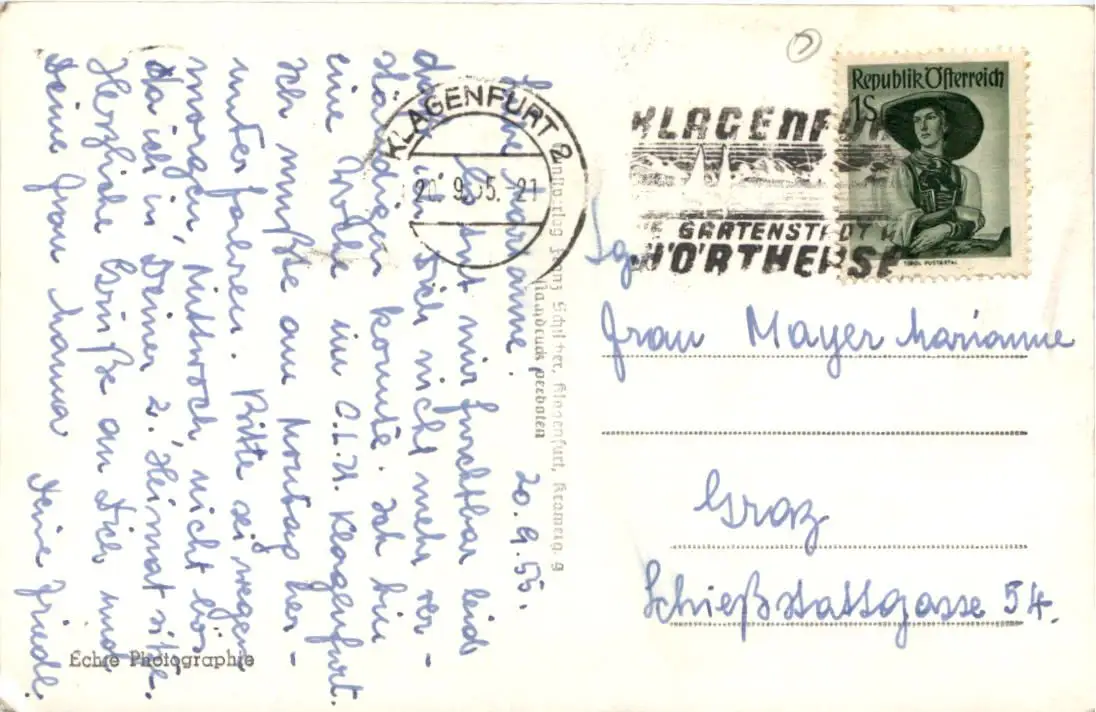 20.9.55.
Liebe Marianne!
Es tut mir furchtbar leid
daß ich Dich nicht mehr ver-
ständigen konnte. Ich bin
eine Woche im C.L.U. Klagenfurt.
Ich mußte am Montag her-
unterfahren. Bitte sei wegen
morgen, Mittwoch nicht bös
da ich in Deiner 2. Heimat sitze.
Herzliche Grüße an Dich und
Deine Frau Mama
Deine Friedl.
Echte Photographie
Franz Schilcher, Klagenfurt, Kramerg. 9
Nachdruck verboten
KLAGENFURT 2
20. 9. 55. 21
KLAGENFURT
GARTENSTADT AM
WÖRTHERSEE
Republik Österreich
1S
TIROL PUSTERTAL
Sg.
Frau Mayer Marianne
Graz
Schießstattgasse 54.